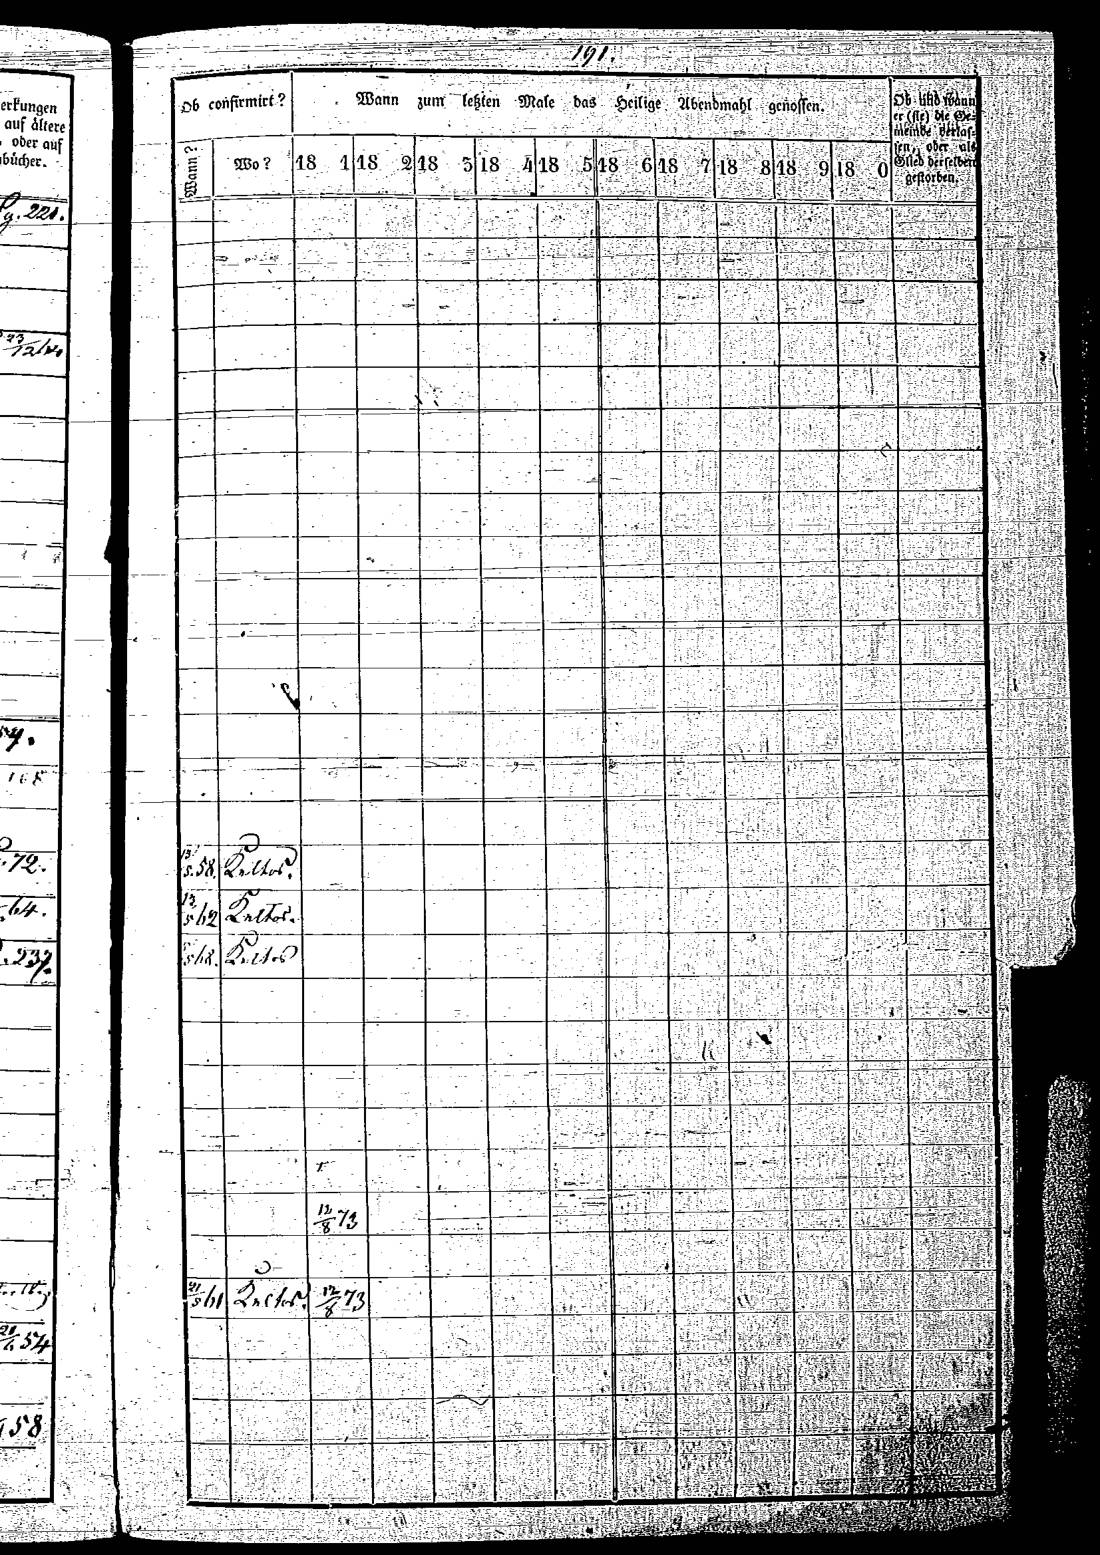 191.
erkungen
auf ältere
, oder auf
nbücher.
Pg. 221.
23/12
57.
168
.72.
.64.
.237.
54
58
Ob confirmirt?
Wann zum letzten Male das Heilige Abendmahl genossen.
Ob und wann
er (sie) die Ge-
meinde verlas-
sen, oder als
Glied derselben
gestorben.
Wann?
Wo?
18 1
18 2
18 3
18 4
18 5
18 6
18 7
18 8
18 9
18 0
13/5 58. Keltos.
13/5 62 Keltos.
5 68. Keltos
12/8 73
21/5 61 Keltos. 12/8 73